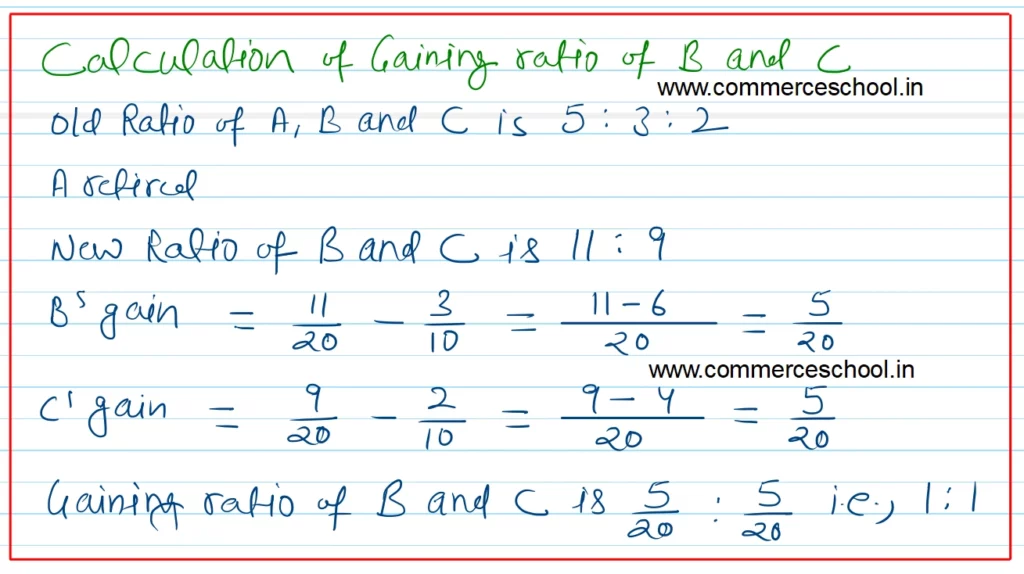 Calculation of Gaining ratio of B and C
www.commerceschool.in
Old Ratio of A, B and C is 5 : 3 : 2
A retired
New Ratio of B and C is 11 : 9
B's gain = 11/20 - 3/10 = 11 - 6/20 = 5/20
www.commerceschool.in
C' gain = 9/20 - 2/10 = 9 - 4/20 = 5/20
Gaining ratio of B and C is 5/20 : 5/20 i.e., 1 : 1